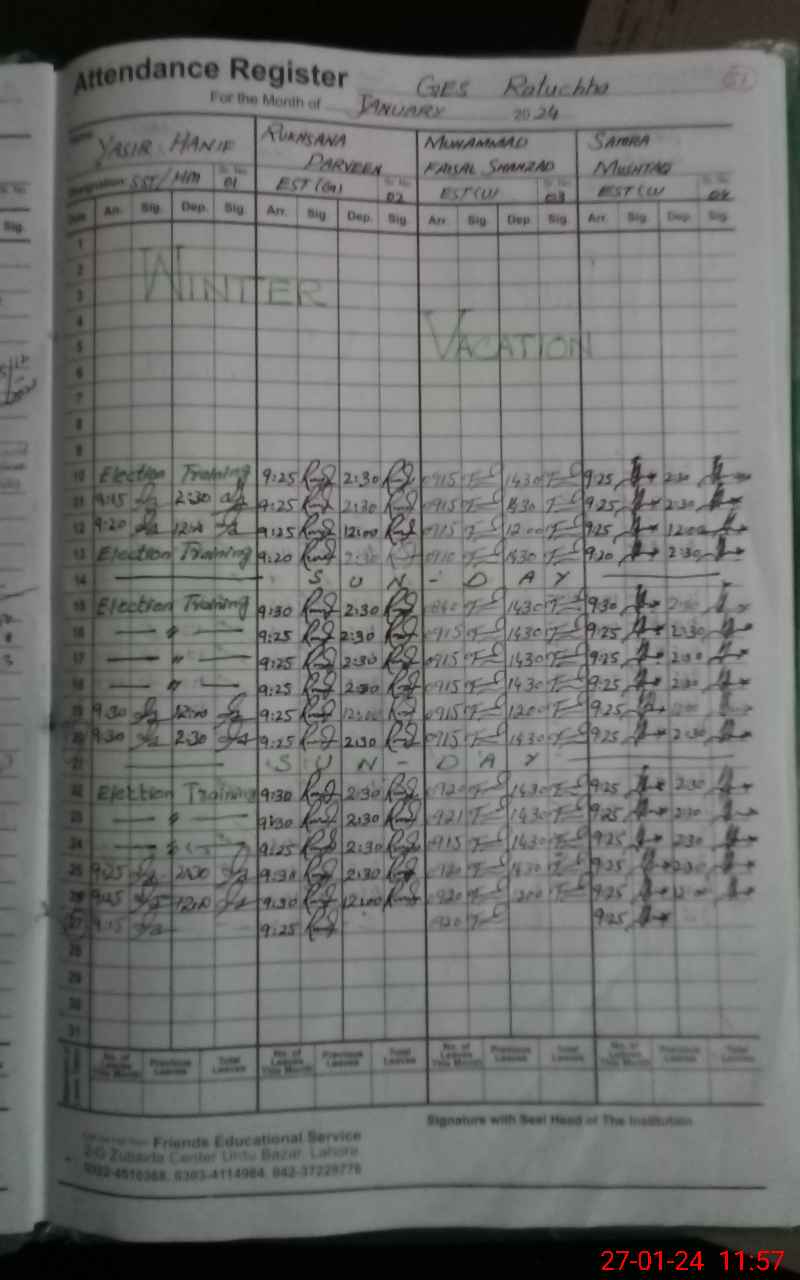 Attendance Register GES Raluchha
For the Month of JANUARY 2024
Name YASIR HANIF RUKHSANA PARVEEN MUHAMMAD FAISAL SHAHZAD SAMRA MUSHTAQ
Designation SST/HM Sr. No. 01 EST (Gn) Sr. No. 02 EST (U) Sr. No. 03 EST (U) Sr. No. 04
Date Arr. Sig. Dep. Sig. Arr. Sig. Dep. Sig. Arr. Sig. Dep. Sig. Arr. Sig. Dep. Sig.
1
2
3
WINTER
4
5
VACATION
6
7
8
9
10 Election Training 9:25 2:30 0915 1430 9:25 2:30
11 9:15 2:30 9:25 2:30 0915 1430 9:25 2:30
12 9:20 12:00 9:25 12:00 0915 1200 9:25 12:00
13 Election Training 9:20 2:30 0910 1430 9:20 2:30
14 SUN-DAY
15 Election Training 9:30 2:30 1430 9:30 2:30
16 〃 9:25 2:30 0915 1430 9:25 2:30
17 〃 9:25 2:30 0915 1430 9:25 2:30
18 〃 9:25 2:30 0915 1430 9:25 2:30
19 9:30 12:00 9:25 12:00 0915 1200 9:25
20 9:30 2:30 9:25 2:30 0915 1430 9:25 2:30
21 SUN-DAY
22 Election Training 9:30 2:30 0920 1430 9:25 2:30
23 〃 9:30 2:30 0921 1430 9:25 2:30
24 〃 9:25 2:30 0915 1430 9:25 2:30
25 9:25 2:30 9:30 2:30 0920 1430 9:25 2:30
26 9:25 12:00 9:30 12:00 0920 1200 9:25 12:00
27 9:15 9:25 0920 9:25
28
29
30
31
No. of Leaves This Month Previous Leaves Total Leaves No. of Leaves This Month Previous Leaves Total Leaves No. of Leaves This Month Previous Leaves Total Leaves No. of Leaves This Month Previous Leaves Total Leaves
Signature with Seal Head of The Institution
Friends Educational Service
2-G Zubaida Center Urdu Bazar, Lahore.
0302-4510368, 0303-4114984, 042-37229776
27-01-24 11:57